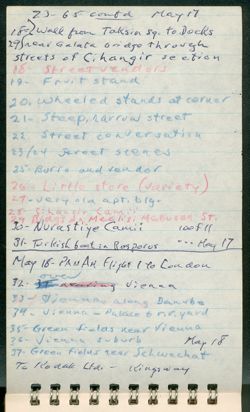 23-65 cont'd May 17
18-2/ Walk from Taksim Sq. to Docks
29/ near Galata bridge through
streets of Cihangir section
18- Street vendors
19- Fruit stand
20- Wheeled stands at corner
21- Steep, narrow street
22 Street conversation
23/24 Street scenes
25- Burro and vendor
26- Little store (variety)
27- very old apt. bldg.
28- Cihangir Camii
29 Bldgs. in Meclisi Mebusan St.
30- Nusretiye Camii
31- Turkish boat in Bosporus ... May 17
May 18- PanAm Flight 1 to London
32- over Vienna
33- Vienna along Danube
34- Vienna - Palace & m. yard
35- Green fields near Vienna
36- Vienna suburb May 18
37- Green fields near Schwechat
To Kodak Ltd - Kingsway